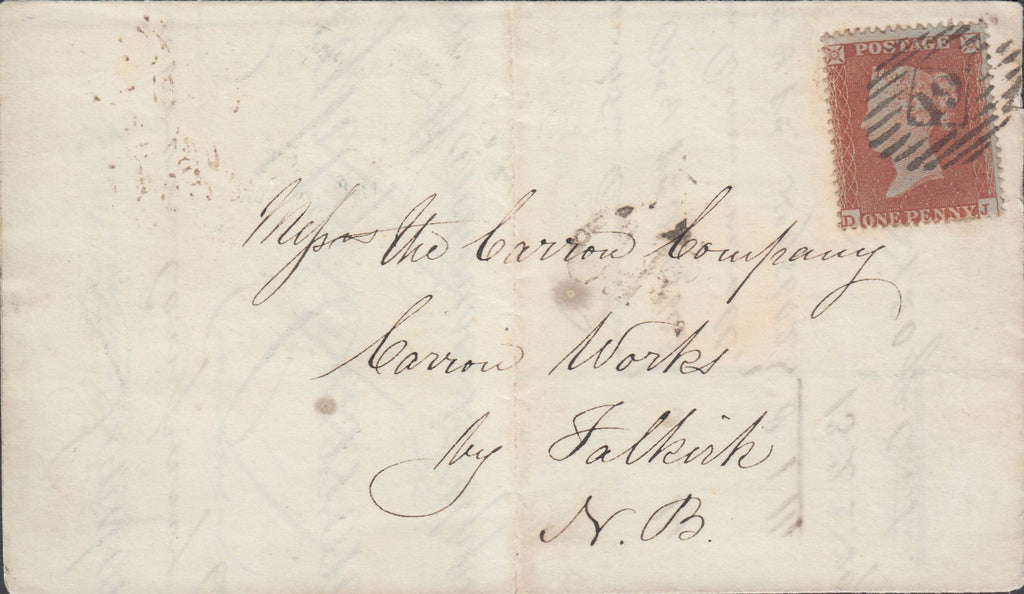 POSTAGE
ONE PENNY
D J
Messrs the Carron Company
Carron Works
by Falkirk
N. B.